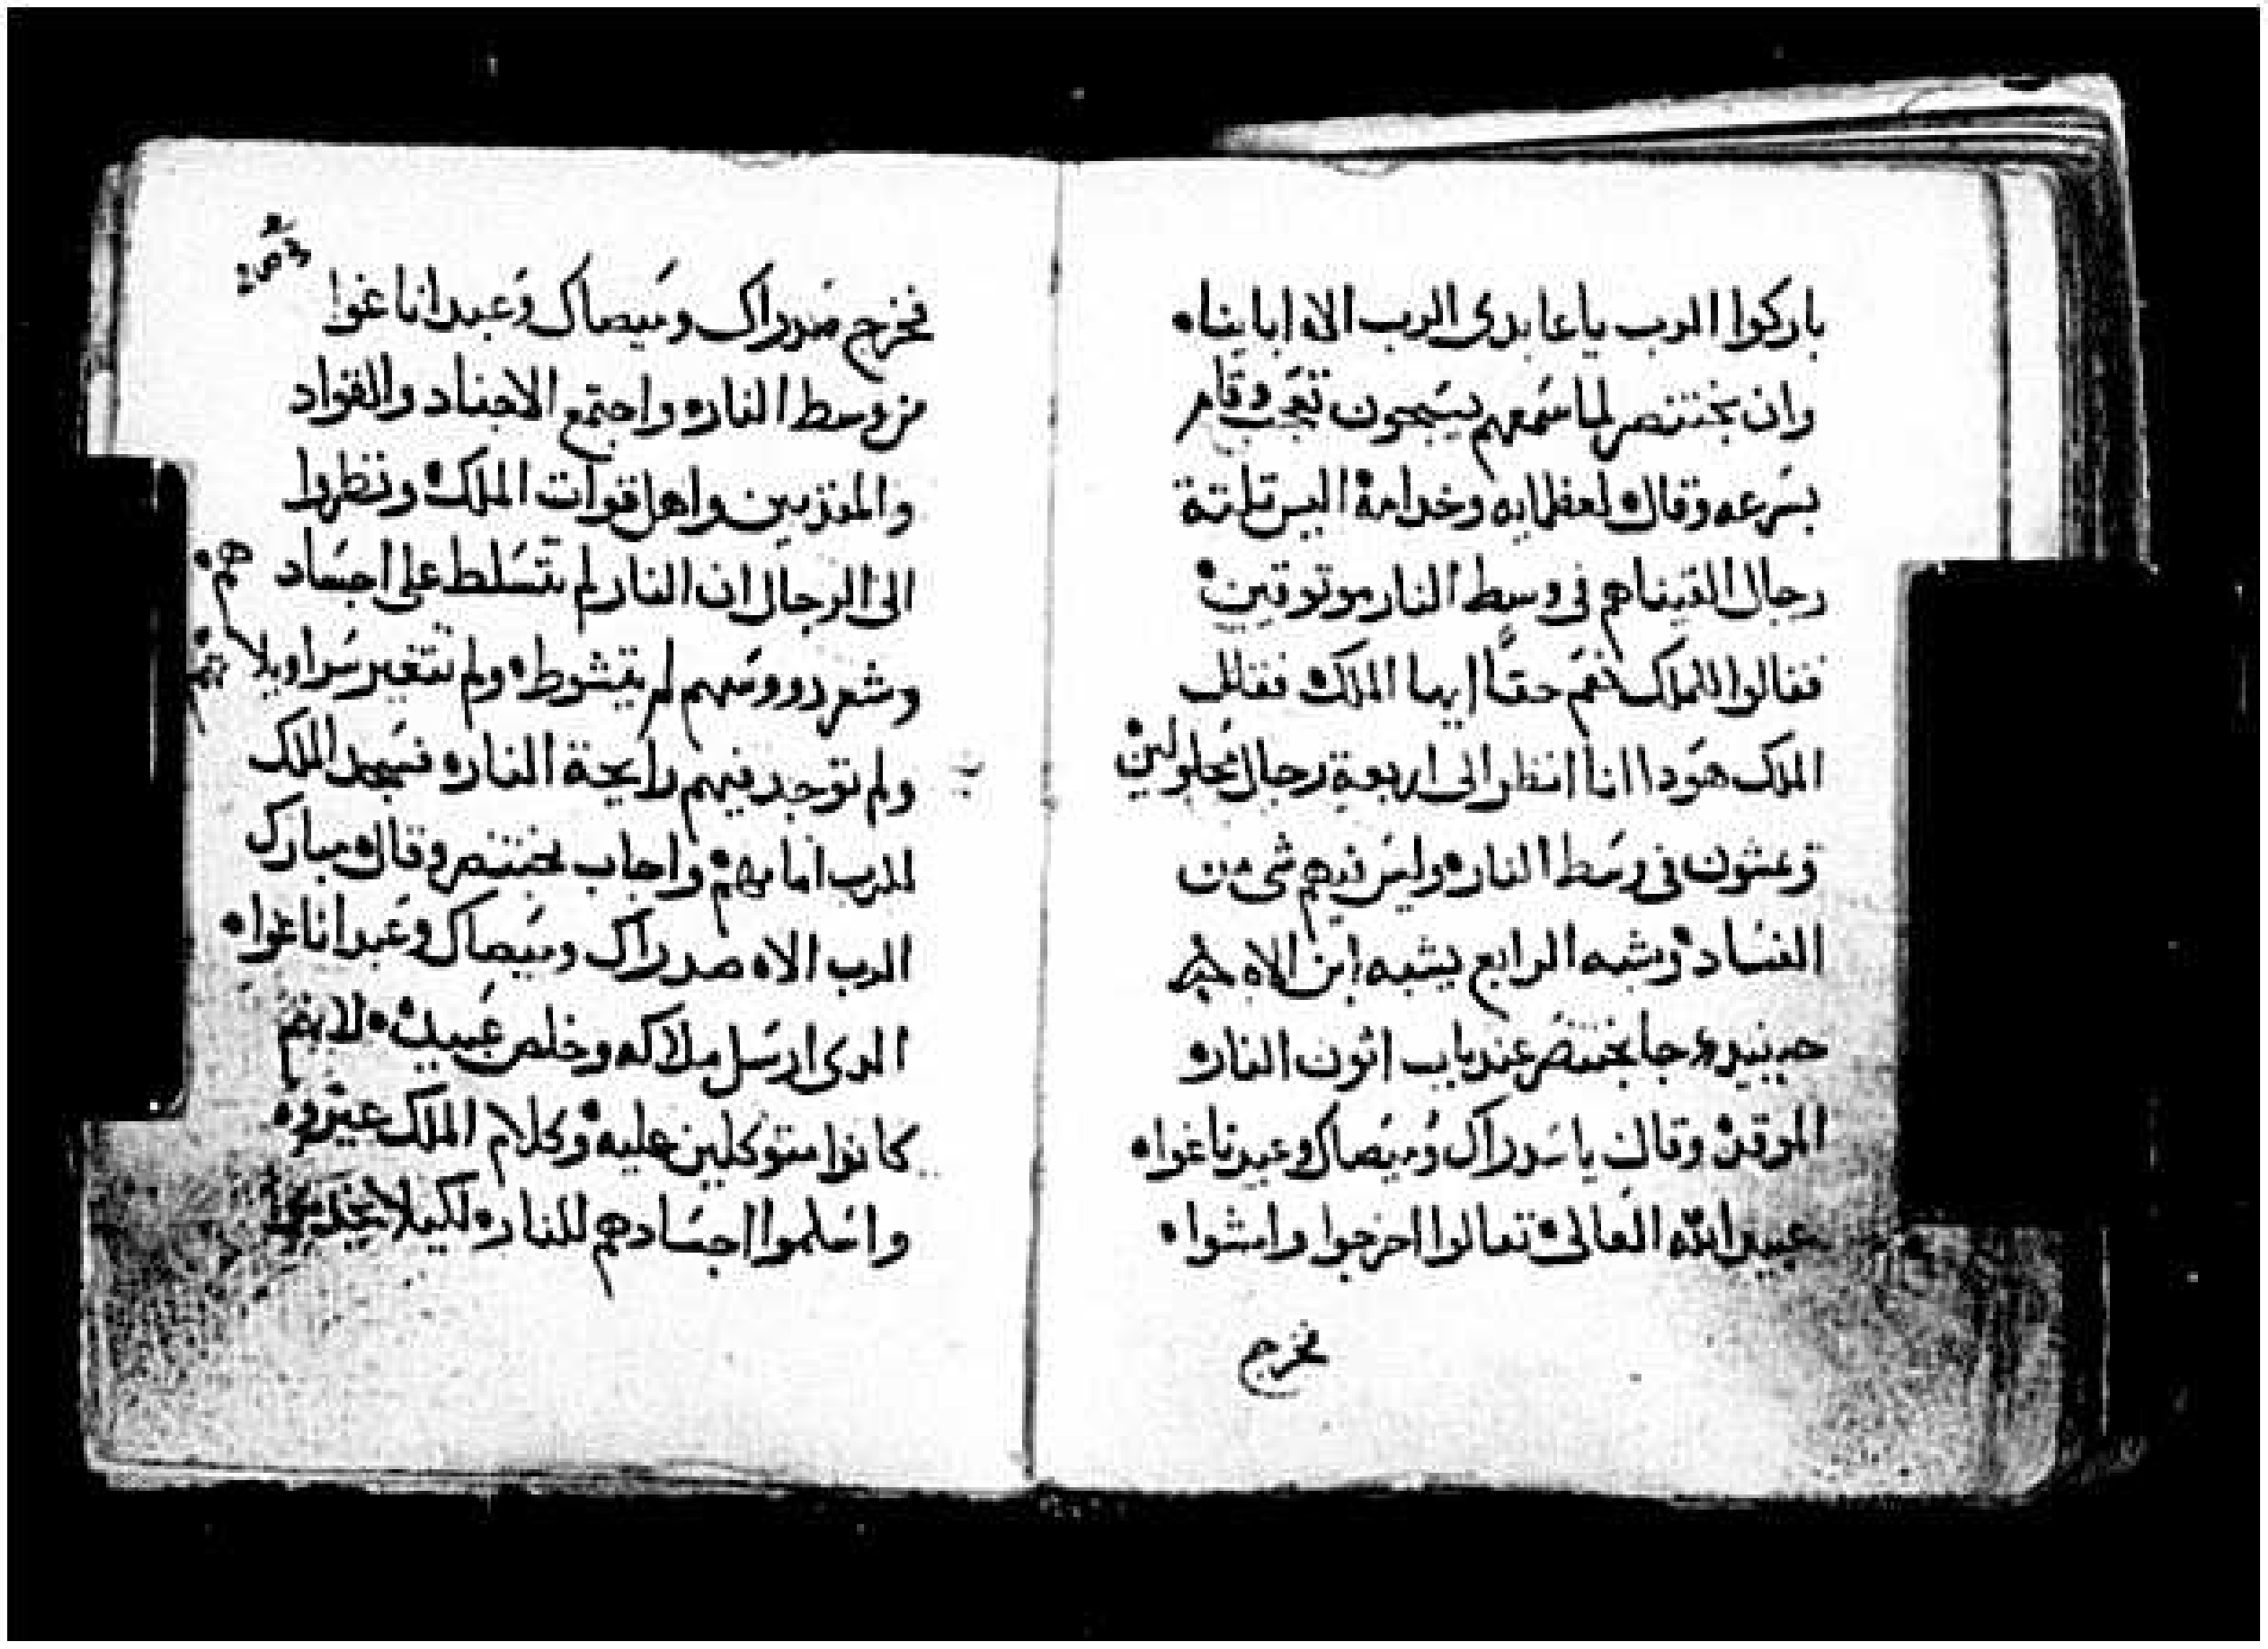 باركوا الرب ياعابدى الرب الاه اباينا.
وان بختنصر لما سمعهم يسبحون تعجب وقام
بسرعه وقال لعظمايه وخدامة اليس تلتة
رجال القيناهم فى وسط النار موتوقين.
فقالوا للملك نعم حقا ايها الملك فقال
الملك هودا انا انظر الى اربعة رجال محلولين
وعشون فى وسط النار وليس فيهم شى من
الفساد وشبه الرابع يشبه ابن الاه
حينيد جا بختنصر عند باب اتون النار
الموقدة وقال ياسدراك وميصاك وعبدناغوا.
عبيد الله العالى تعالوا اخرجوا وامشوا.
فخرج
فخرج سدراك وميصاك وعبداناغوا
من وسط النار. واجتمع الاجناد والقواد
والمقزمين واهل قوات الملك ونظروا
الى الرجال ان النار لم تتسلط على اجسادهم.
وشعر رووسهم لم يتشوط. ولم تتغير سراويلاتهم
ولم توجد فيهم رايحة النار. فسجد الملك
للرب امامهم. واجاب بختنصر وقال مبارك
الرب الاه صدراك وميصاك وعبداناغوا.
الدى ارسل ملاكه وخلص عبيده. لانهم
كانوا متوكلين عليه. وكلام الملك غيروه
واسلموا اجسادهم للنار. لكيلا